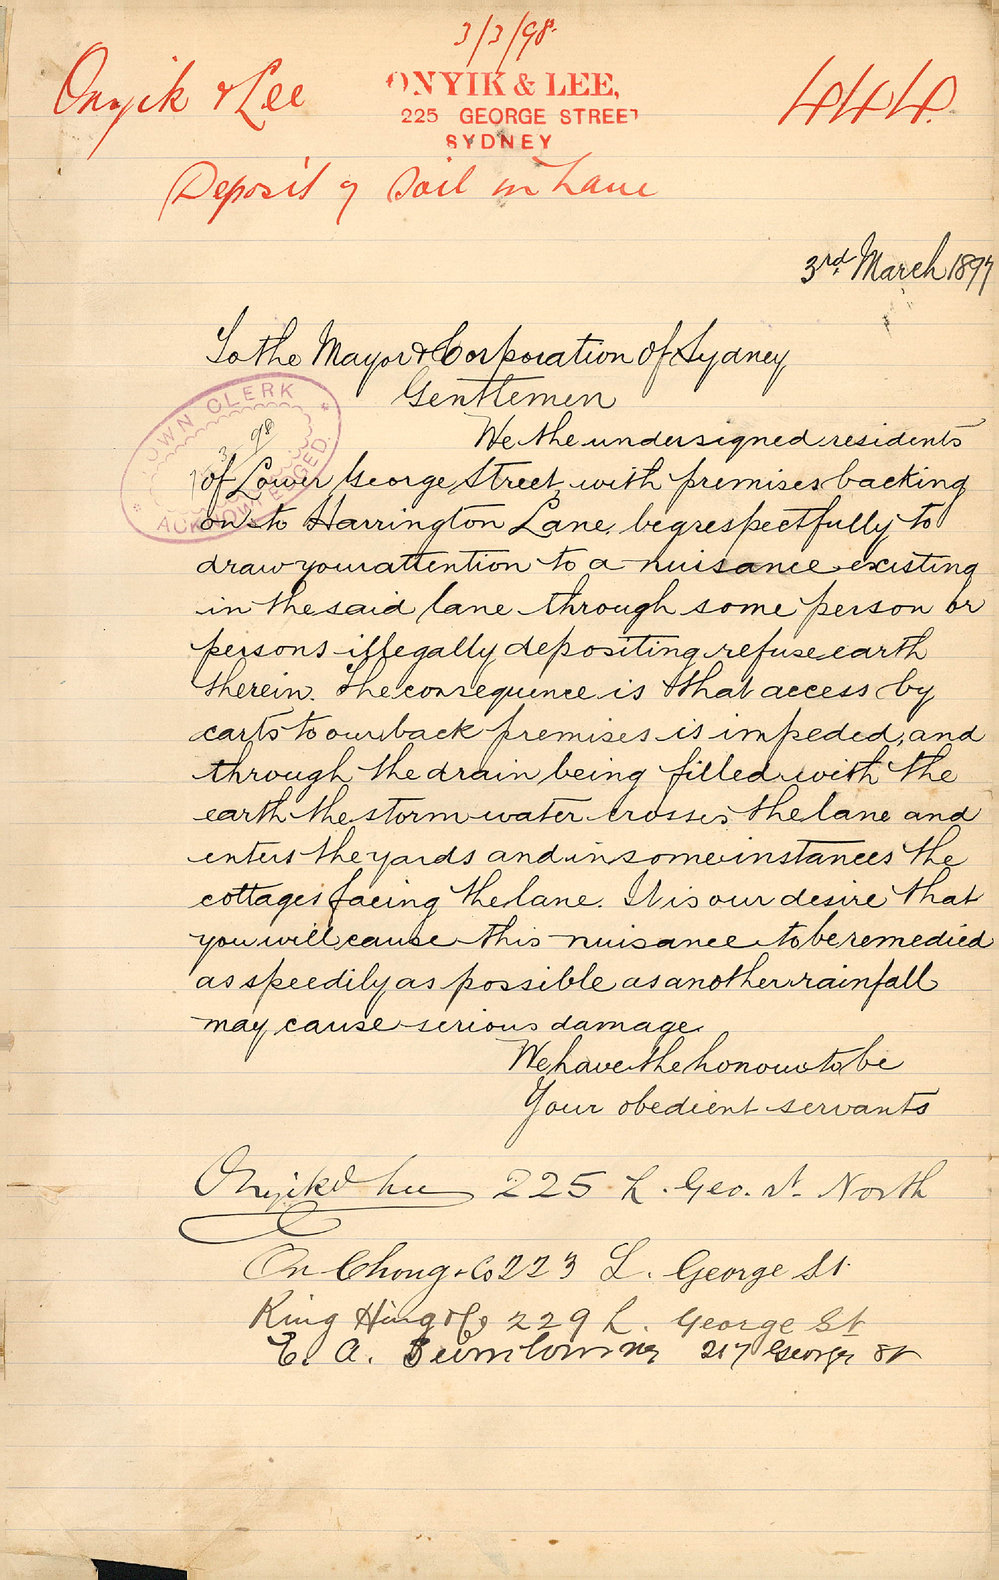 3/3/98.
Onyik & Lee
ONYIK & LEE,
444.
225 GEORGE STREET
SYDNEY
Deposit of Soil in Lane
3rd. March 1897
To the Mayor & Corporation of Sydney
Gentlemen
TOWN CLERK
ACKNOWLEDGED.
3 98
We the undersigned residents
of Lower George Street, with premises backing
on to Harrington Lane, beg respectfully to
draw your attention to a nuisance existing
in the said lane through some person or
persons illegally depositing refuse earth
therein. The consequence is that access by
carts to our back premises is impeded, and
through the drain being filled with the
earth the storm water crosses the lane and
enters the yards and in some instances the
cottages facing the lane. It is our desire that
you will cause this nuisance to be remedied
as speedily as possible as another rainfall
may cause serious damage.
We have the honour to be
Your obedient servants
Onyik & Lee 225 L. Geo. St. North
On Chong & Co 223 L. George St.
King Hing & Co 229 L. George St
E. A. 217 George St